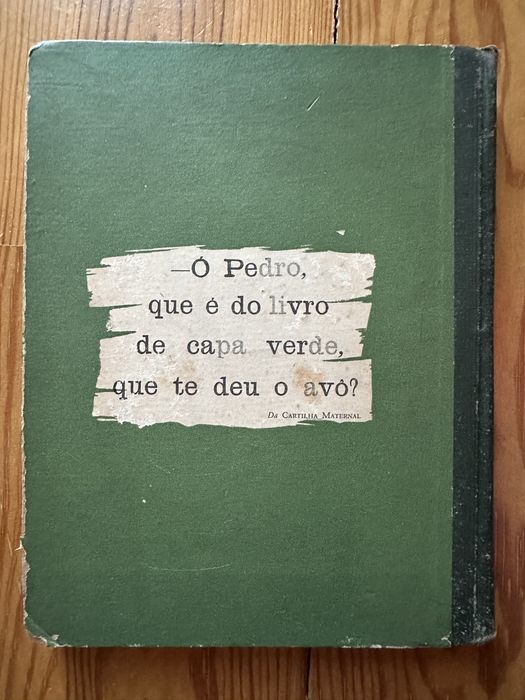 —Ó Pedro,
que é do livro
de capa verde,
que te deu o avô?
Da CARTILHA MATERNAL